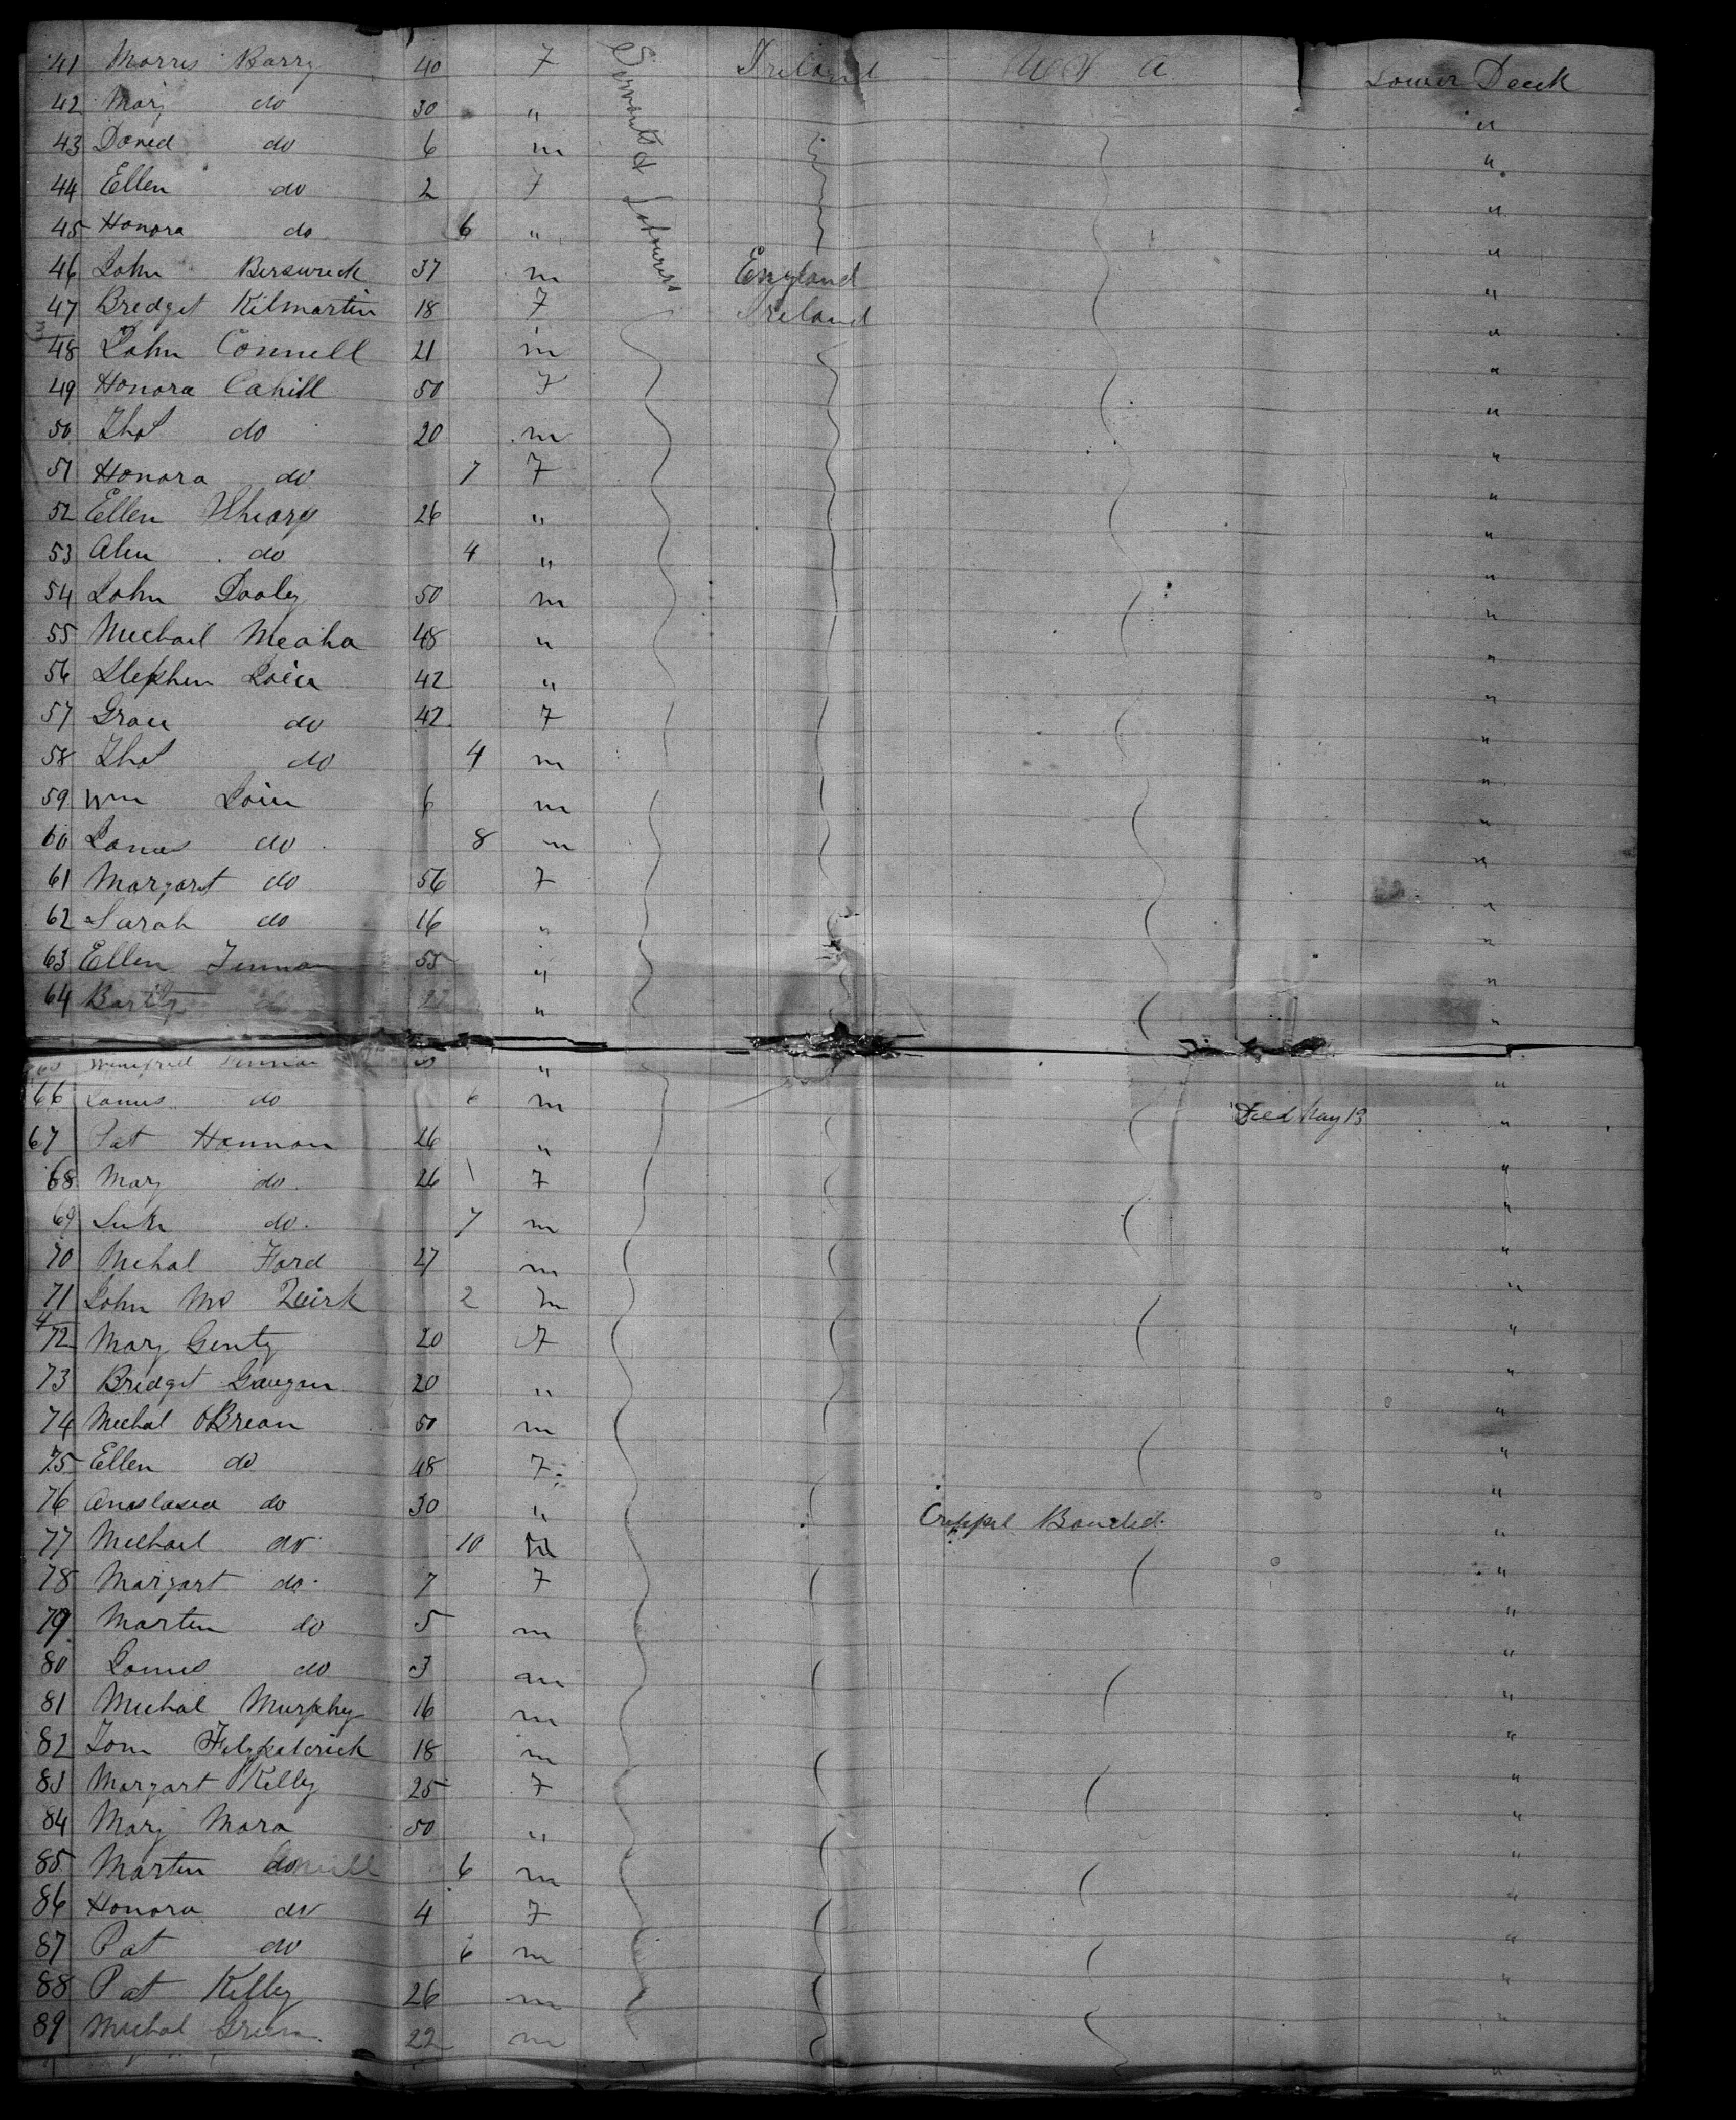 41 Morris Barry 40 7 Servants & Labourers Ireland U S A Lower Deck
42 Mary do 30 " "
43 Daned do 6 m "
44 Ellen do 2 7 "
45 Honora do 6 " "
46 John Berswick 37 m England "
47 Bredget Kilmartin 18 7 Ireland "
3
48 John Connell 21 m "
49 Honora Cahill 50 7 "
50 Thos do 20 m "
51 Honora do 7 7 "
52 Ellen 26 " "
53 do 4 " "
54 John Dooley 50 m "
55 Michail Meaha 48 " "
56 Stephen 42 " "
57 Grace do 42 7 "
58 Thos do 4 m "
59 Wm 6 m "
60 James do 8 m "
61 Margart do 56 7 "
62 Sarah do 16 " "
63 Ellen 55 " "
64 " "
Winefred " "
66 James do 6 m Died May 13 "
67 Pat Hannon 26 " "
68 Mary do 26 7 "
69 Luke do 7 m "
70 Mehal Ford 27 m "
71 John Mc Quirk 2 m "
4
72 Mary Genty 20 7 "
73 Bridget Gaugan 20 " "
74 Mechal OBrean 50 m "
75 Ellen do 48 7 "
76 Anastasia do 30 " Crippel Bonded "
77 Michael do 10 m "
78 Margart do 7 7 "
79 Marten do 5 m "
80 James do 3 m "
81 Michal Murphy 16 m "
82 Tom Fitzpaterick 18 m "
83 Margart Kelly 25 7 "
84 Mary Mara 50 " "
85 Marten do 6 m "
86 Honora do 4 7 "
87 Pat do 6 m "
88 Pat Kelley 26 m "
89 Michal Green 22 m "
"